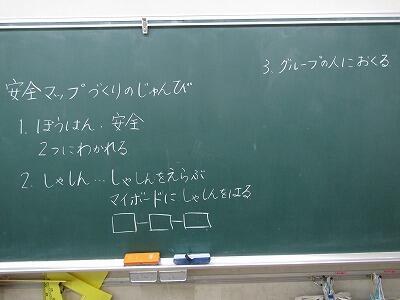 安全マップづくりのじゅんび
1. ぼうはん．安全
2つにわかれる
2. しゃしん…しゃしんをえらぶ
マイボードにしゃしんをはる
3. グループの人におくる